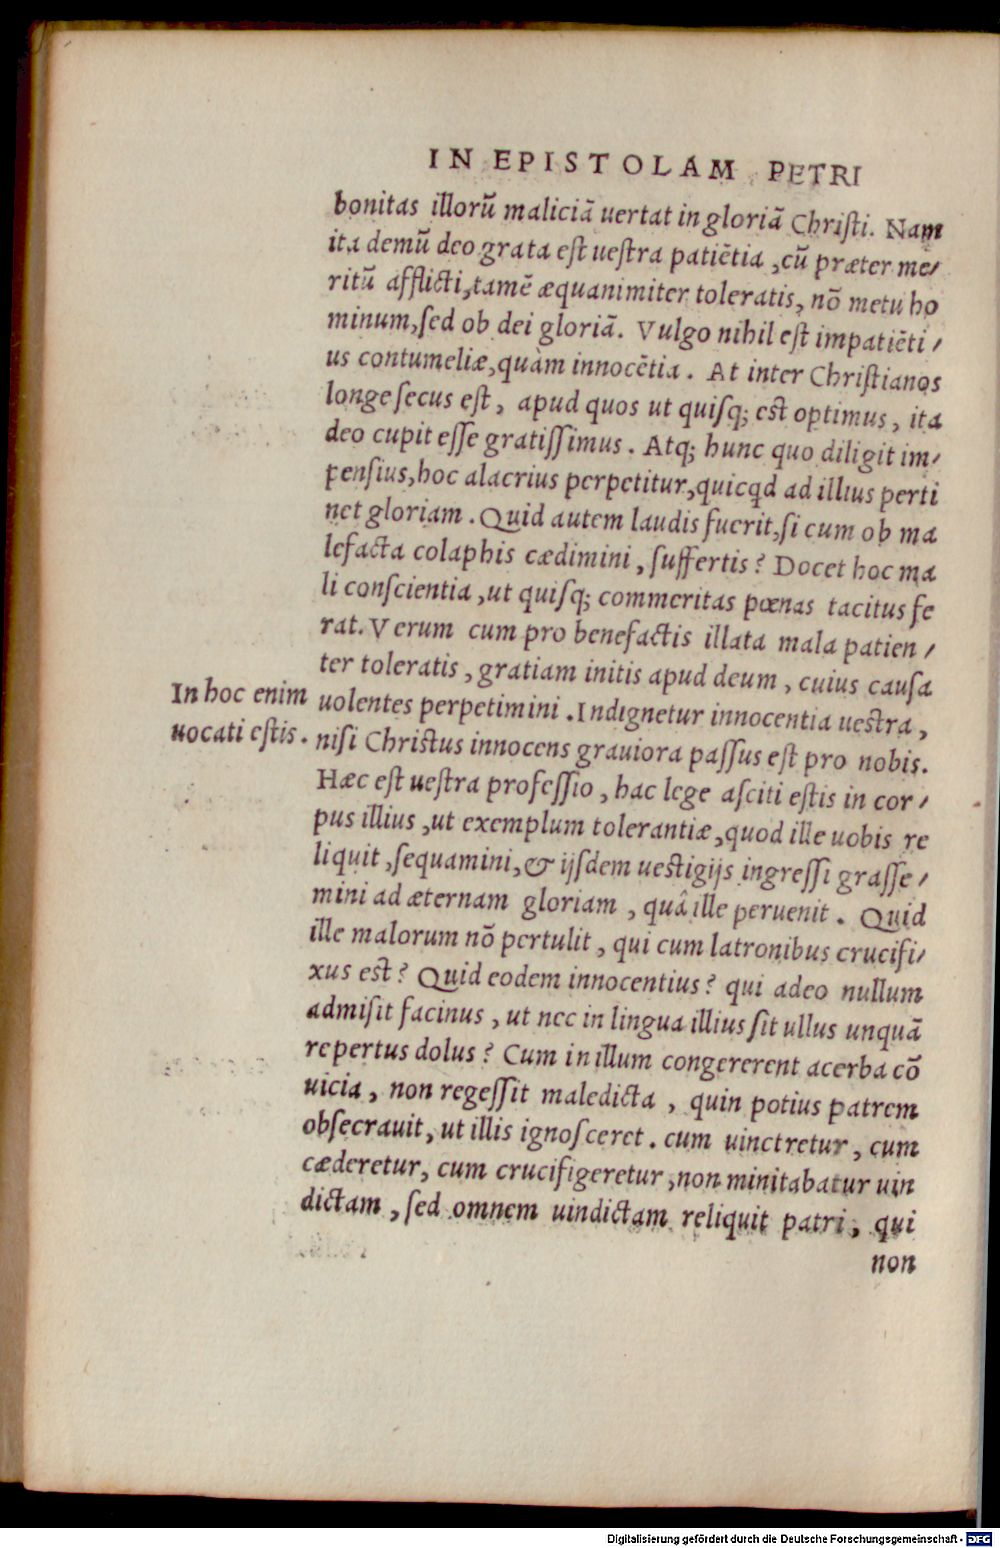 IN EPISTOLAM PETRI
bonitas illorū maliciā uertat in gloriā Christi. Nam
ita demū deo grata est uestra patiētia, cū præter me/
ritū afflicti, tamē æquanimiter toleratis, nō metu ho
minum, sed ob dei gloriā. Vulgo nihil est impatiēti/
us contumeliæ, quàm innocētia. At inter Christianos
longe secus est, apud quos ut quisq; est optimus, ita
deo cupit esse gratissimus. Atq; hunc quo diligit im/
pensius, hoc alacrius perpetitur, quicqd ad illius perti
net gloriam. Quid autem laudis fuerit, si cum ob ma
lefacta colaphis cædimini, suffertis? Docet hoc ma
li conscientia, ut quisq; commeritas pœnas tacitus fe
rat. Verum cum pro benefactis illata mala patien/
ter toleratis, gratiam initis apud deum, cuius causa
In hoc enim
uocati estis.
uolentes perpetimini. Indignetur innocentia uestra,
nisi Christus innocens grauiora passus est pro nobis.
Hæc est uestra professio, hac lege asciti estis in cor/
pus illius, ut exemplum tolerantiæ, quod ille uobis re
liquit, sequamini, & ijsdem uestigijs ingressi grasse/
mini ad æternam gloriam, quâ ille peruenit. Quid
ille malorum nō pertulit, qui cum latronibus crucifi/
xus est? Quid eodem innocentius? qui adeo nullum
admisit facinus, ut nec in lingua illius sit ullus unquā
repertus dolus? Cum in illum congererent acerba cō
uicia, non regessit maledicta, quin potius patrem
obsecrauit, ut illis ignosceret. cum uinctretur, cum
cæderetur, cum crucifigeretur, non minitabatur uin
dictam, sed omnem uindictam reliquit patri, qui
non
Digitalisierung gefördert durch die Deutsche Forschungsgemeinschaft - DFG